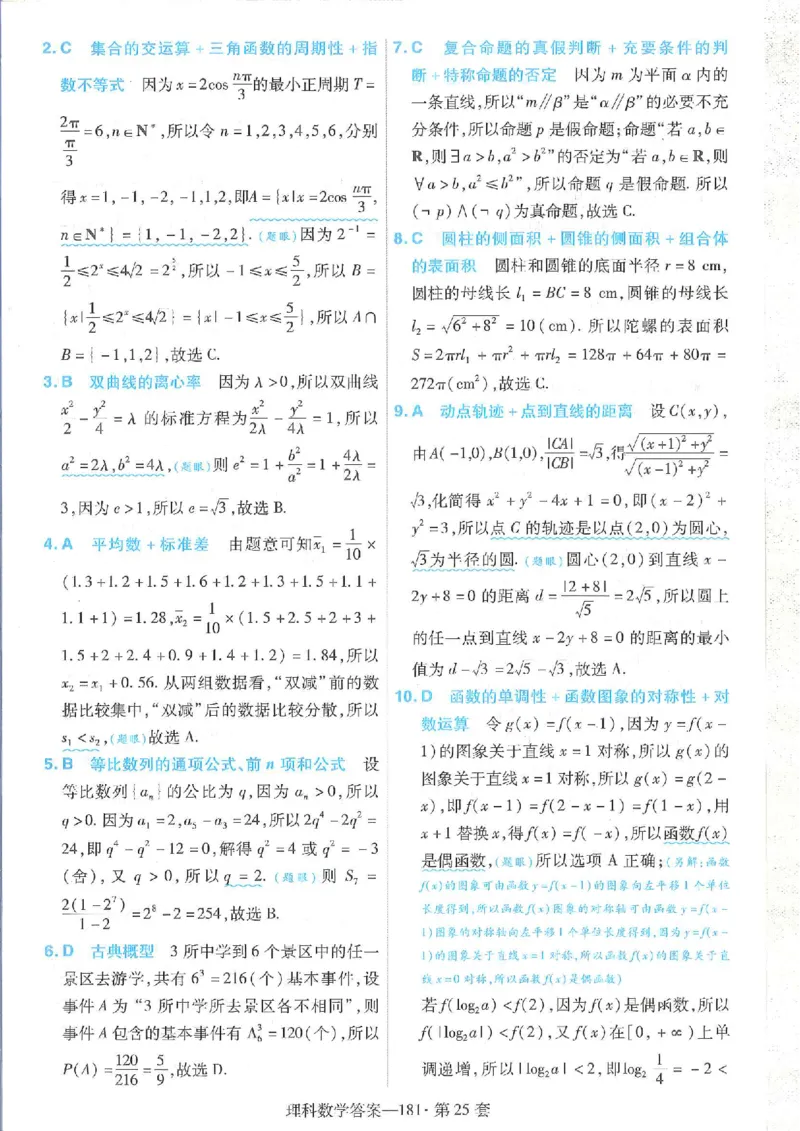 2.C 集合的交运算+三角函数的周期性+指
数不等式 因为x=2cos nπ/3的最小正周期T=
2π/(π/3)=6,n∈N*,所以令n=1,2,3,4,5,6,分别
得x=1,-1,-2,-1,1,2,即A={x|x=2cos nπ/3,
n∈N*}={1,-1,-2,2}.(题眼)因为2⁻¹=
1/2≤2ˣ≤4√2=2^(5/2),所以-1≤x≤5/2,所以B=
{x|1/2≤2ˣ≤4√2}={x|-1≤x≤5/2},所以A∩
B={-1,1,2},故选C.
3.B 双曲线的离心率 因为λ>0,所以双曲线
x²/2-y²/4=λ的标准方程为x²/2λ-y²/4λ=1,所以
a²=2λ,b²=4λ,(题眼)则e²=1+b²/a²=1+4λ/2λ=
3,因为e>1,所以e=√3,故选B.
4.A 平均数+标准差 由题意可知x̄₁=1/10×
(1.3+1.2+1.5+1.6+1.2+1.3+1.5+1.1+
1.1+1)=1.28,x̄₂=1/10×(1.5+2.5+2+3+
1.5+2+2.4+0.9+1.4+1.2)=1.84,所以
x₂=x₁+0.56.从两组数据看,“双减”前的数
据比较集中,“双减”后的数据比较分散,所以
s₁<s₂,(题眼)故选A.
5.B 等比数列的通项公式、前n项和公式 设
等比数列{aₙ}的公比为q,因为aₙ>0,所以
q>0.因为a₁=2,a₅-a₃=24,所以2q⁴-2q²=
24,即q⁴-q²-12=0,解得q²=4或q²=-3
(舍),又q>0,所以q=2.(题眼)则S₇=
2(1-2⁷)/(1-2)=2⁸-2=254,故选B.
6.D 古典概型 3所中学到6个景区中的任一
景区去游学,共有6³=216(个)基本事件,设
事件A为“3所中学所去景区各不相同”,则
事件A包含的基本事件有A₆³=120(个),所以
P(A)=120/216=5/9,故选D.
7.C 复合命题的真假判断+充要条件的判
断+特称命题的否定 因为m为平面α内的
一条直线,所以“m∥β”是“α∥β”的必要不充
分条件,所以命题p是假命题;命题“若a,b∈
R,则∃a>b,a²>b²”的否定为“若a,b∈R,则
∀a>b,a²≤b²”,所以命题q是假命题.所以
(¬p)∧(¬q)为真命题,故选C.
8.C 圆柱的侧面积+圆锥的侧面积+组合体
的表面积 圆柱和圆锥的底面半径r=8 cm,
圆柱的母线长l₁=BC=8 cm,圆锥的母线长
l₂=√(6²+8²)=10(cm).所以陀螺的表面积
S=2πrl₁+πr²+πrl₂=128π+64π+80π=
272π(cm²),故选C.
9.A 动点轨迹+点到直线的距离 设C(x,y),
由A(-1,0),B(1,0),|CA|/|CB|=√3,得√((x+1)²+y²)/√((x-1)²+y²)=
√3,化简得x²+y²-4x+1=0,即(x-2)²+
y²=3,所以点C的轨迹是以点(2,0)为圆心,
√3为半径的圆.(题眼)圆心(2,0)到直线x-
2y+8=0的距离d=|2+8|/√5=2√5,所以圆上
的任一点到直线x-2y+8=0的距离的最小
值为d-√3=2√5-√3,故选A.
10.D 函数的单调性+函数图象的对称性+对
数运算 令g(x)=f(x-1),因为y=f(x-
1)的图象关于直线x=1对称,所以g(x)的
图象关于直线x=1对称,所以g(x)=g(2-
x),即f(x-1)=f(2-x-1)=f(1-x),用
x+1替换x,得f(x)=f(-x),所以函数f(x)
是偶函数,(题眼)所以选项A正确;(另解:函数
f(x)的图象可由函数y=f(x-1)的图象向左平移1个单位
长度得到,所以函数f(x)图象的对称轴可由函数y=f(x-
1)图象的对称轴向左平移1个单位长度得到,因为y=f(x-
1)的图象关于直线x=1对称,所以函数f(x)的图象关于直
线x=0对称,所以函数f(x)是偶函数)
若f(log₂a)<f(2),因为f(x)是偶函数,所以
f(|log₂a|)<f(2),又f(x)在[0,+∞)上单
调递增,所以|log₂a|<2,即log₂ 1/4=-2<
理科数学答案—181·第25套